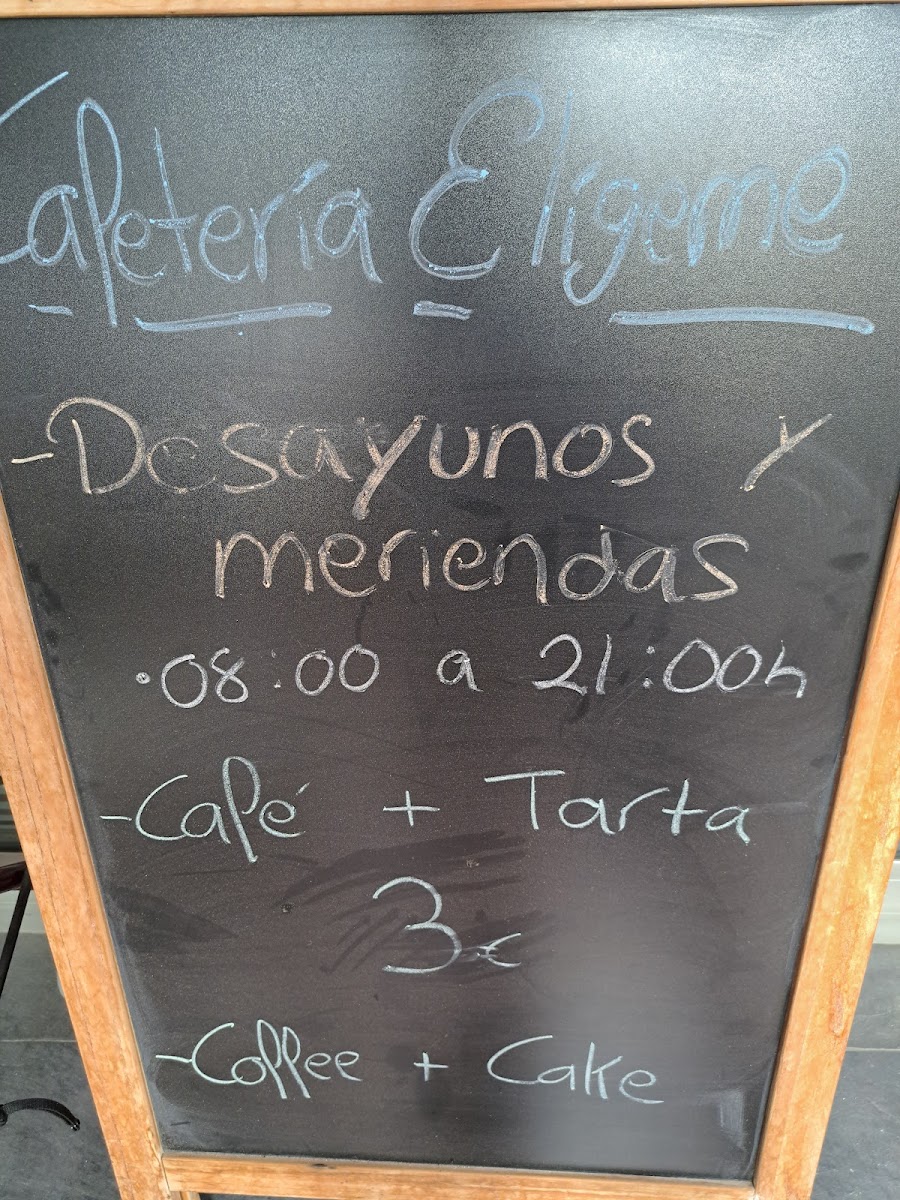 Cafetería Elígeme
-Desayunos y
meriendas
·08:00 a 21:00h
-Café + Tarta
3€
-Coffee + Cake